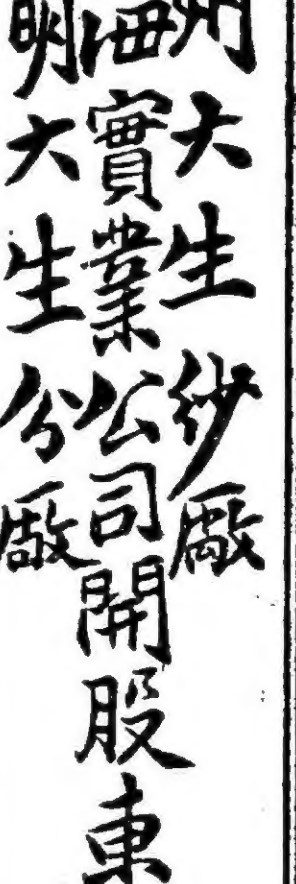 州大生紗廠
海實業公司開股東
明大生分廠